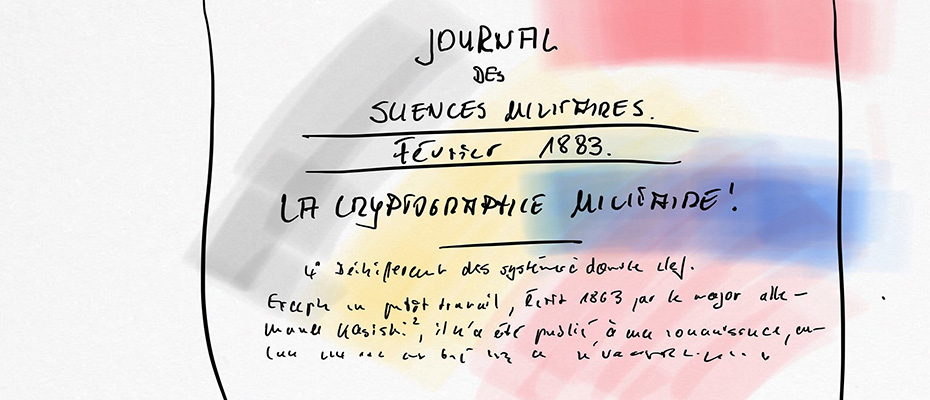 JOURNAL
DES
SCIENCES MILITAIRES.
Février 1883.
LA CRYPTOGRAPHIE MILITAIRE!
4° Déchiffrement des systèmes à double clef.
Excepté un petit travail, écrit 1863 par le major alle-
mand Kasiski², il n'a été publié à ma connaissance, au-